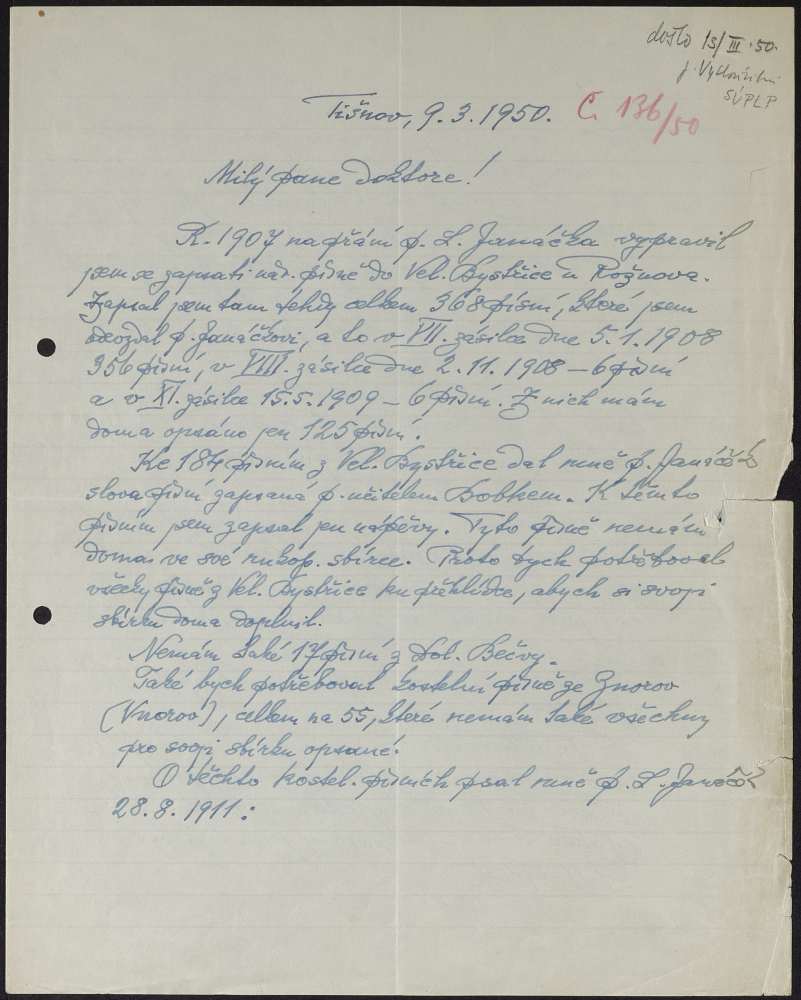 došlo 15/III.50.
SÚPLP
Tišnov, 9.3.1950. Č. 136/50
Milý pane doktore!
R. 1907 na přání p. L. Janáčka vypravil
jsem se zapsati nár. písně do Vel. Bystřice u Rožnova.
Zapsal jsem tam tehdy celkem 368 písní, které jsem
odevzdal p. Janáčkovi, a to v VII. zásilce dne 5.1.1908
356 písní, v VIII. zásilce dne 2.11.1908 – 6 písní
a v XI. zásilce 15.5.1909 – 6 písní. Z nich mám
doma opsáno jen 125 písní.
Ke 184 písním z Vel. Bystřice dal mně p. Janáček
slova písní zapsaná p. učitelem Bobkem. K těmto
písním jsem zapsal jen nápěvy. Tyto písně nemám
doma ve své rukop. sbírce. Proto bych potřeboval
všecky písně z Vel. Bystřice ku přehlídce, abych si svoji
sbírku doma doplnil.
Nemám také 17 písní z Dol. Bečvy.
Také bych potřeboval kostelní písně ze Znorov
(Vnorov), celkem na 55, které nemám také všechny
pro svoji sbírku opsané.
O těchto kostel. písních psal mně p. L. Janáček
28.8.1911: